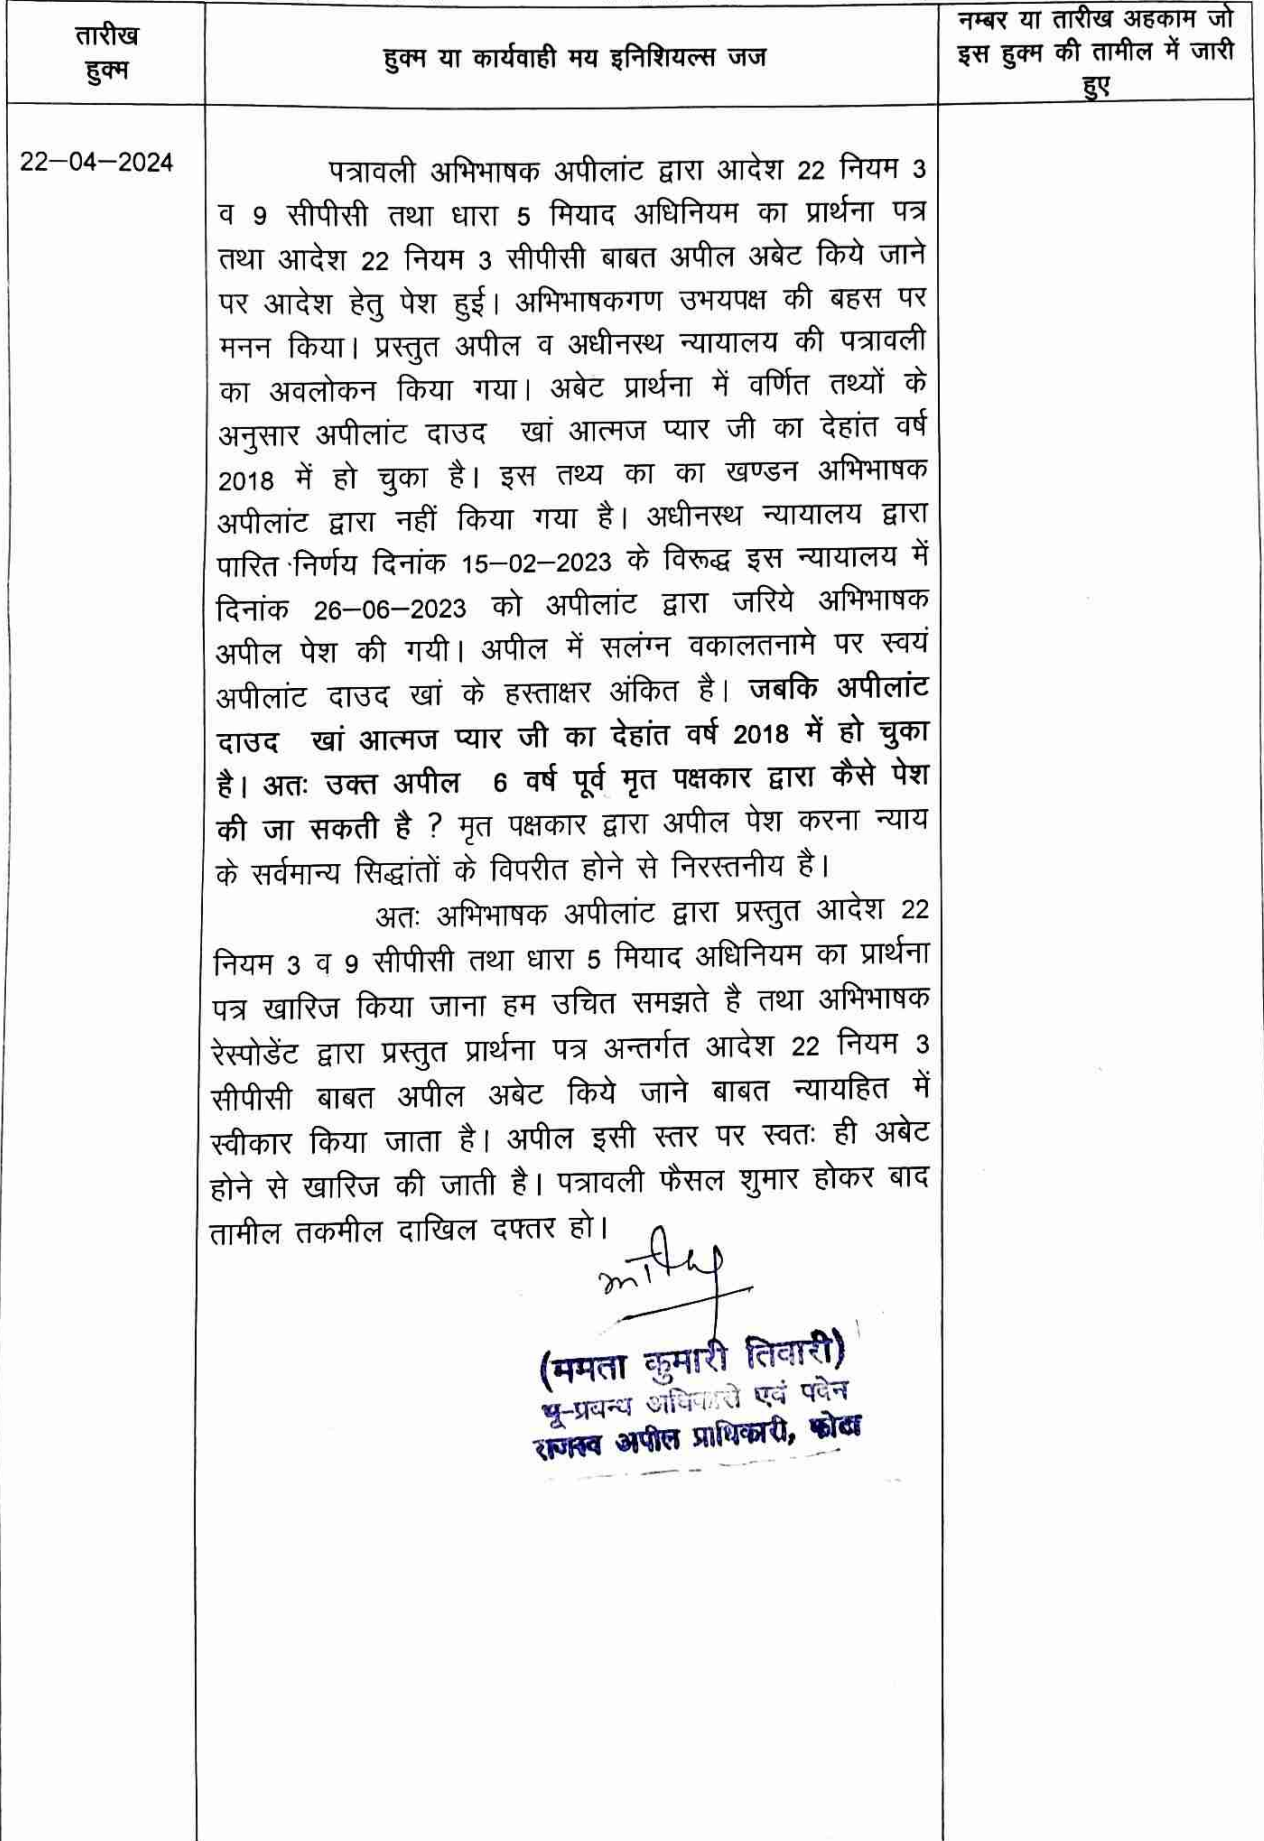 तारीख
हुक्म
हुक्म या कार्यवाही मय इनिशियल्स जज
नम्बर या तारीख अहकाम जो
इस हुक्म की तामील में जारी
हुए
22–04–2024
पत्रावली अभिभाषक अपीलांट द्वारा आदेश 22 नियम 3
व 9 सीपीसी तथा धारा 5 मियाद अधिनियम का प्रार्थना पत्र
तथा आदेश 22 नियम 3 सीपीसी बाबत अपील अबेट किये जाने
पर आदेश हेतु पेश हुई। अभिभाषकगण उभयपक्ष की बहस पर
मनन किया। प्रस्तुत अपील व अधीनस्थ न्यायालय की पत्रावली
का अवलोकन किया गया। अबेट प्रार्थना में वर्णित तथ्यों के
अनुसार अपीलांट दाउद खां आत्मज प्यार जी का देहांत वर्ष
2018 में हो चुका है। इस तथ्य का का खण्डन अभिभाषक
अपीलांट द्वारा नहीं किया गया है। अधीनस्थ न्यायालय द्वारा
पारित निर्णय दिनांक 15–02–2023 के विरूद्ध इस न्यायालय में
दिनांक 26–06–2023 को अपीलांट द्वारा जरिये अभिभाषक
अपील पेश की गयी। अपील में सलंग्न वकालतनामे पर स्वयं
अपीलांट दाउद खां के हस्ताक्षर अंकित है। जबकि अपीलांट
दाउद खां आत्मज प्यार जी का देहांत वर्ष 2018 में हो चुका
है। अतः उक्त अपील 6 वर्ष पूर्व मृत पक्षकार द्वारा कैसे पेश
की जा सकती है ? मृत पक्षकार द्वारा अपील पेश करना न्याय
के सर्वमान्य सिद्धांतों के विपरीत होने से निरस्तनीय है।
अतः अभिभाषक अपीलांट द्वारा प्रस्तुत आदेश 22
नियम 3 व 9 सीपीसी तथा धारा 5 मियाद अधिनियम का प्रार्थना
पत्र खारिज किया जाना हम उचित समझते है तथा अभिभाषक
रेस्पोडेंट द्वारा प्रस्तुत प्रार्थना पत्र अन्तर्गत आदेश 22 नियम 3
सीपीसी बाबत अपील अबेट किये जाने बाबत न्यायहित में
स्वीकार किया जाता है। अपील इसी स्तर पर स्वतः ही अबेट
होने से खारिज की जाती है। पत्रावली फैसल शुमार होकर बाद
तामील तकमील दाखिल दफ्तर हो।
(ममता कुमारी तिवारी)
भू-प्रबन्ध अधिकारी एवं पदेन
राजस्व अपील प्राधिकारी, कोटा